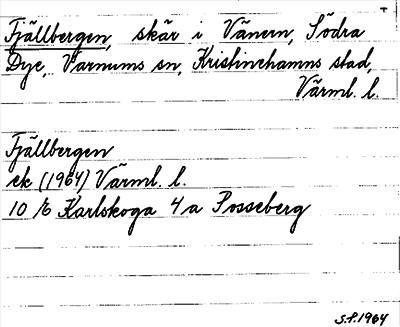 Fjällbergen, skär i Vänern, Södra
Dye, Varnums sn, Kristinehamns stad,
Värml. l.
Fjällbergen
ek (1964) Värml. l.
10 E Karlskoga 4 a Posseberg
S.P. 1964